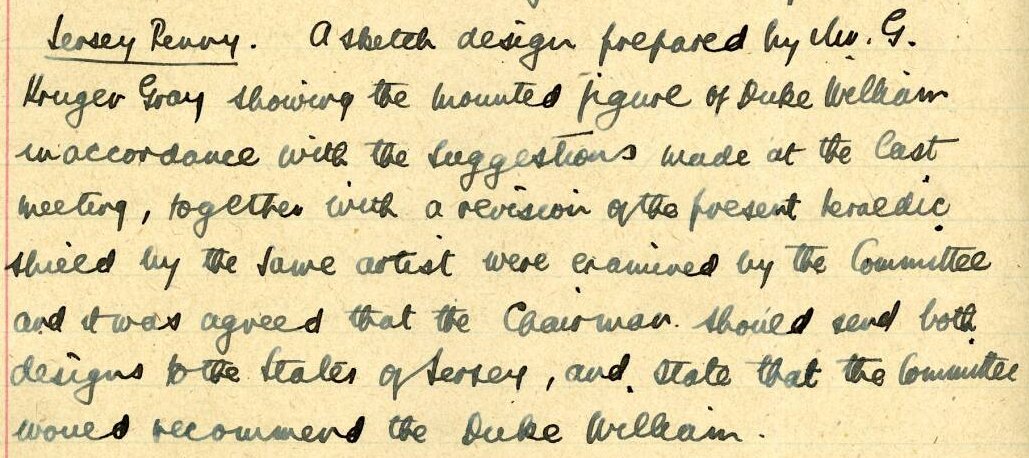 Jersey Penny. A sketch design prepared by Mr. G.
Kruger Gray showing the mounted figure of Duke William
in accordance with the suggestions made at the last
meeting, together with a revision of the present heraldic
shield by the same artist were examined by the Committee
and it was agreed that the Chairman should send both
designs to the States of Jersey, and state that the Committee
would recommend the Duke William.